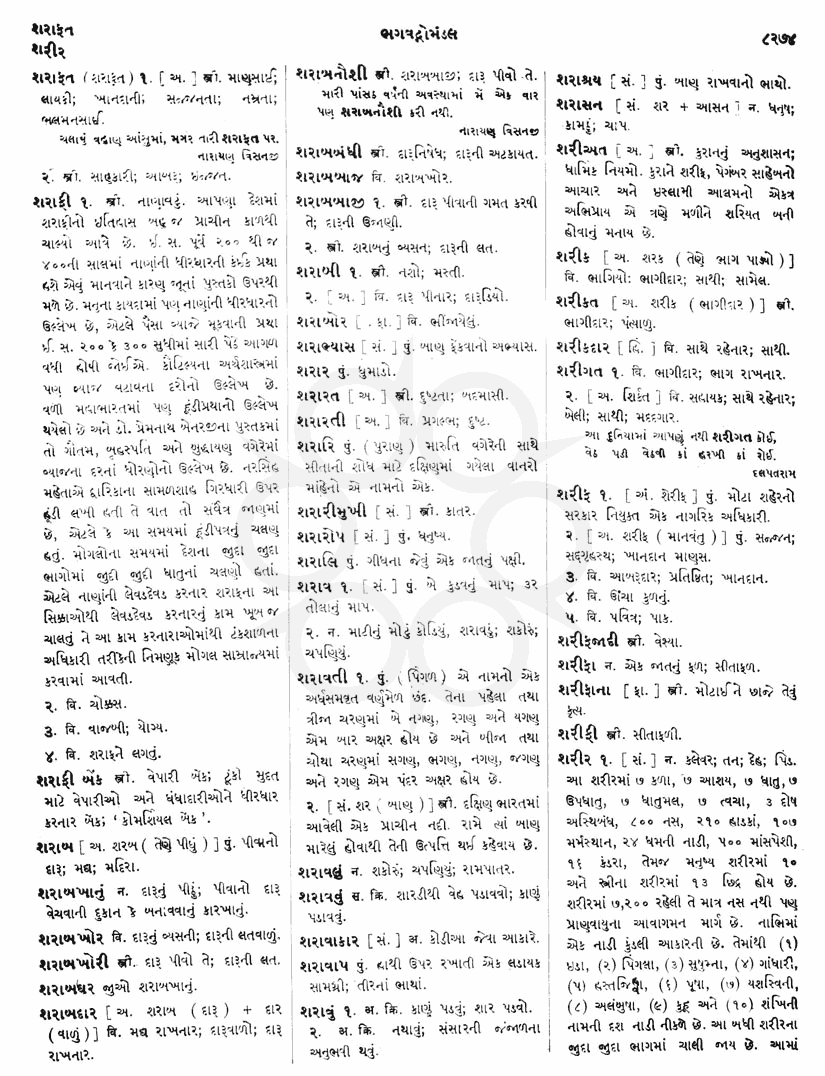 શરાફત
શરીર
ભગવદ્ગોમંડલ
૮૨૭૪
શરાફત (શરાફત) ૧. [ અ. ] સ્ત્રી. માણસાઈ;
લાયકી; ખાનદાની; સજ્જનતા; નમ્રતા;
ભલમનસાઈ.
ચલાવું વહાણ આંસુમાં, મગર તારી શરાફત પર.
નારાયણ વિસનજી
૨. સ્ત્રી. સાહુકારી; આબરૂ; ઇજ્જત.
શરાફી ૧. સ્ત્રી. નાણાવટું. આપણા દેશમાં
શરાફીનો ઇતિહાસ બહુ જ પ્રાચીન કાળથી
ચાલ્યો આવે છે. ઈ. સ. પૂર્વે ૨૦૦ થી જ
૪૦૦ની સાલમાં નાણાંની ધીરધારની કંઈક પ્રથા
હશે એવું માનવાને કારણ જૂનાં પુસ્તકો ઉપરથી
મળે છે. મનુના કાયદામાં પણ નાણાંની ધીરધારનો
ઉલ્લેખ છે, એટલે પૈસા વ્યાજે મૂકવાની પ્રથા
ઈ. સ. ૨૦૦ કે ૩૦૦ સુધીમાં સારી પેઠે આગળ
વધી હોવી જોઈએ. કૌટિલ્યના અર્થશાસ્ત્રમાં
પણ વ્યાજ વટાવના દરોનો ઉલ્લેખ છે.
વળી મહાભારતમાં પણ હૂંડીપ્રથાનો ઉલ્લેખ
થયેલો છે અને ડો. પ્રેમનાથ બેનરજીના પુસ્તકમાં
તો ગૌતમ, બૃહસ્પતિ અને બુદ્ધાયણ વગેરેમાં
વ્યાજના દરનાં ધોરણોનો ઉલ્લેખ છે. નરસિંહ
મહેતાએ દ્વારિકાના સામળશાહ ગિરધારી ઉપર
હૂંડી લખી હતી તે વાત તો સર્વત્ર જાણમાં
છે, એટલે કે આ સમયમાં હૂંડીપત્રનું ચલણ
હતું. મોગલોના સમયમાં દેશના જુદા જુદા
ભાગોમાં જુદી જુદી ધાતુનાં ચલણો હતાં.
એટલે નાણાંની લેવડદેવડ કરનાર શરાફના આ
સિક્કાઓથી લેવડદેવડ કરનારનું કામ ખૂબ જ
ચાલતું તે આ કામ કરનારાઓમાંથી ટંકશાળના
અધિકારી તરીકેની નિમણૂક મોગલ સામ્રાજ્યમાં
કરવામાં આવતી.
૨. વિ. ચોક્કસ.
૩. વિ. વાજબી; યોગ્ય.
૪. વિ. શરાફને લગતું.
શરાફી બેંક સ્ત્રી. વેપારી બેંક; ટૂંકી મુદત
માટે વેપારીઓ અને ધંધાદારીઓને ધીરધાર
કરનાર બેંક; ‘ કોમર્શિયલ બેંક ’.
શરાબ [ અ. શરબ ( તેણે પીધું ) ] પું. પીવાનો
દારૂ; મદ્ય; મદિરા.
શરાબખાનું ન. દારૂનું પીઠું; પીવાનો દારૂ
વેચવાની દુકાન કે બનાવવાનું કારખાનું.
શરાબખોર વિ. દારૂનું વ્યસની; દારૂની લતવાળું.
શરાબખોરી સ્ત્રી. દારૂ પીવો તે; દારૂની લત.
શરાબઘર જુઓ શરાબખાનું.
શરાબદાર [ અ. શરાબ ( દારૂ ) + દાર
( વાળું ) ] વિ. મદ્ય રાખનાર; દારૂવાળો; દારૂ
રાખનાર.
શરાબનૌશી સ્ત્રી. શરાબબાજી; દારૂ પીવો તે.
મારી પાંસઠ વર્ષની અવસ્થામાં મેં એક વાર
પણ શરાબનૌશી કરી નથી.
નારાયણ વિસનજી
શરાબબંધી સ્ત્રી. દારૂનિષેધ; દારૂની અટકાયત.
શરાબબાજ વિ. શરાબખોર.
શરાબબાજી ૧. સ્ત્રી. દારૂ પીવાની ગમત કરવી
તે; દારૂની ઉજાણી.
૨. સ્ત્રી. શરાબનું વ્યસન; દારૂની લત.
શરાબી ૧. સ્ત્રી. નશો; મસ્તી.
૨. [ અ. ] વિ. દારૂ પીનાર; દારૂડિયો.
શરાબોર [ .ફા. ] વિ. ભીંજાયેલું.
શરાભ્યાસ [ સં. ] પું. બાણ ફેંકવાનો અભ્યાસ.
શરાર પું. ધુમાડો.
શરારત [ અ. ] સ્ત્રી. દુષ્ટતા; બદમાસી.
શરારતી [ અ. ] વિ. પ્રગલ્ભ; દુષ્ટ.
શરારિ પું. ( પુરાણ ) મારુતિ વગેરેની સાથે
સીતાની શોધ માટે દક્ષિણમાં ગયેલા વાનરો
માંહેનો એ નામનો એક.
શરારીમુખી [ સં. ] સ્ત્રી. કાતર.
શરારોપ [ સં. ] પું. ધનુષ્ય.
શરાલિ પું. ગીધના જેવું એક જાતનું પક્ષી.
શરાવ ૧. [ સં. ] પું. બે કુડવનું માપ; ૩૨
તોલાનું માપ.
૨. ન. માટીનું મોટું કોડિયું, શરાવડું; શકોરું;
ચપણિયું.
શરાવતી ૧. પું. ( પિંગળ ) એ નામનો એક
અર્ધસમવૃત્ત વર્ણમેળ છંદ. તેના પહેલા તથા
ત્રીજા ચરણમાં બે નગણ, રગણ અને યગણ
એમ બાર અક્ષર હોય છે અને બીજા તથા
ચોથા ચરણમાં સગણ, ભગણ, નગણ, જગણ
અને રગણ એમ પંદર અક્ષર હોય છે.
૨. [ સં. શર ( બાણ ) ] સ્ત્રી. દક્ષિણ ભારતમાં
આવેલી એક પ્રાચીન નદી. રામે ત્યાં બાણ
મારેલું હોવાથી તેની ઉત્પત્તિ થઈ કહેવાય છે.
શરાવલું ન. શકોરું; ચપણિયું; રામપાતર.
શરાવવું સ. ક્રિ. શારડીથી વેહ પડાવવો; કાણું
પડાવવું.
શરાવાકાર [ સં. ] અ. કોડીઆ જેવા આકારે.
શરાવાપ પું. હાથી ઉપર રખાતી એક લડાયક
સામગ્રી; તીરનાં ભાથાં.
શરાવું ૧. અ. ક્રિ. કાણું પડવું; શાર પડવો.
૨. અ. ક્રિ. નથાવું; સંસારની જંજાળના
અનુભવી થવું.
શરાશ્રય [ સં. ] પું. બાણ રાખવાનો ભાથો.
શરાસન [ સં. શર + આસન ] ન. ધનુષ;
કામઠું; ચાપ.
શરીઅત [ અ. ] સ્ત્રી. કુરાનનું અનુશાસન;
ધાર્મિક નિયમો. કુરાને શરીફ, પેગંબર સાહેબનો
આચાર અને ઇસ્લામી આલમનો એકત્ર
અભિપ્રાય એ ત્રણે મળીને શરિયત બની
હોવાનું મનાય છે.
શરીક [ અ. શરક ( તેણે ભાગ પાડ્યો ) ]
વિ. ભાગિયો; ભાગીદાર; સાથી; સામેલ.
શરીકત [ અ. શરીક ( ભાગીદાર ) ] સ્ત્રી.
ભાગીદાર; પંત્યાળુ.
શરીકદાર [ હિં. ] વિ. સાથે રહેનાર; સાથી.
શરીગત ૧. વિ. ભાગીદાર; ભાગ રાખનાર.
૨. [ અ. શિર્કત ] વિ. સહાયક; સાથે રહેનાર;
બેલી; સાથી; મદદગાર.
આ દુનિયામાં આપણું નથી શરીગત કોઈ,
વેઠ પડી વેઠવી કાં હરખી કાં રોઈ.
દલપતરામ
શરીફ ૧. [ અં. શેરીફ ] પું. મોટા શહેરનો
સરકાર નિયુક્ત એક નાગરિક અધિકારી.
૨. [ અ. શરીફ ( માનવંતુ ) ] પું. સજ્જન;
સદ્ગૃહસ્થ; ખાનદાન માણસ.
૩. વિ. આબરૂદાર; પ્રતિષ્ઠિત; ખાનદાન.
૪. વિ. ઊંચા કુળનું.
૫. વિ. પવિત્ર; પાક.
શરીફજાદી સ્ત્રી. વેશ્યા.
શરીફા ન. એક જાતનું ફળ; સીતાફળ.
શરીફાના [ ફા. ] સ્ત્રી. મોટાઈને છાજે તેવું
કૃત્ય.
શરીફી સ્ત્રી. સીતાફળી.
શરીર ૧. [ સં. ] ન. કલેવર; તન; દેહ; પિંડ.
આ શરીરમાં ૭ કળા, ૭ આશય, ૭ ધાતુ, ૭
ઉપધાતુ, ૭ ધાતુમલ, ૭ ત્વચા, ૩ દોષ
અસ્થિબંધ, ૮૦૦ નસ, ૨૧૦ હાડકાં, ૧૦૭
મર્મસ્થાન, ૨૪ ધમની નાડી, ૫૦૦ માંસપેશી,
૧૬ કંડરા, તેમજ મનુષ્ય શરીરમાં ૧૦
અને સ્ત્રીના શરીરમાં ૧૩ છિદ્ર હોય છે.
શરીરમાં ૭,૨૦૦ રહેલી તે માત્ર નસ નથી પણ
પ્રાણવાયુના આવાગમન માર્ગ છે. નાભિમાં
એક નાડી કુંડલી આકારની છે. તેમાંથી (૧)
ઇડા, (૨) પિંગલા, (૩) સુષુમ્ના, (૪) ગાંધારી,
(૫) હસ્તજિહ્વા, (૬) પૂષા, (૭) યશસ્વિની,
(૮) અલંબુષા, (૯) કુહૂ અને (૧૦) શંખિની
નામની દશ નાડી નીકળે છે. આ બધી શરીરના
જુદા જુદા ભાગમાં ચાલી જાય છે. આમાં